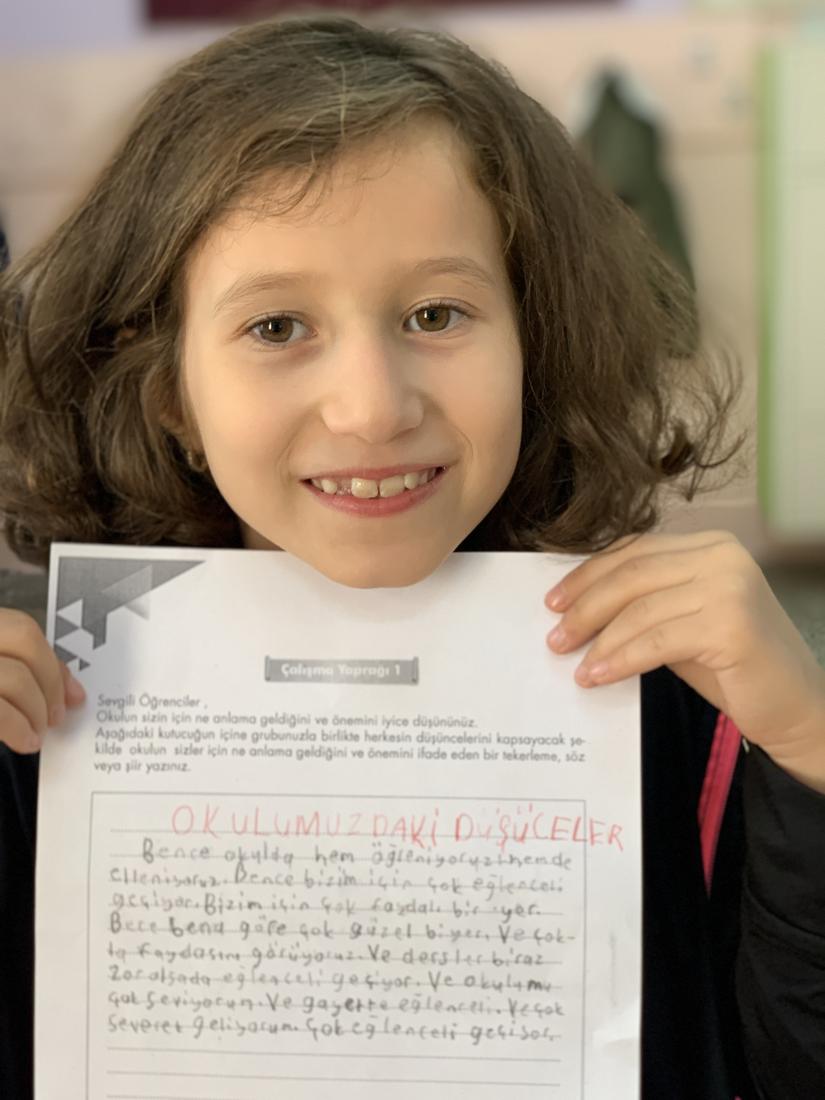 Çalışma Yaprağı 1
Sevgili Öğrenciler ,
Okulun sizin için ne anlama geldiğini ve önemini iyice düşününüz.
Aşağıdaki kutucuğun içine grubunuzla birlikte herkesin düşüncelerini kapsayacak şe-
kilde okulun sizler için ne anlama geldiğini ve önemini ifade eden bir tekerleme, söz
veya şiir yazınız.
OKULUMUZDAKİ DÜŞÜCELER
Bence okulda hem öğleniyoruz hemde
elleniyoruz. Bence bizim için çok eğlenceli
geçiyor. Bizim için çok faydalı bir yer.
Bece bena göre çok güzel biyer. Ve çok-
ta faydasını görüyoruz. Ve dersler biraz
zor olsada eğlenceli geçiyor. Ve okulumu
çok seviyorum. Ve gayette eğlenceli. Ve çok
severet geliyorum. Çok eğlenceli geçiyor.